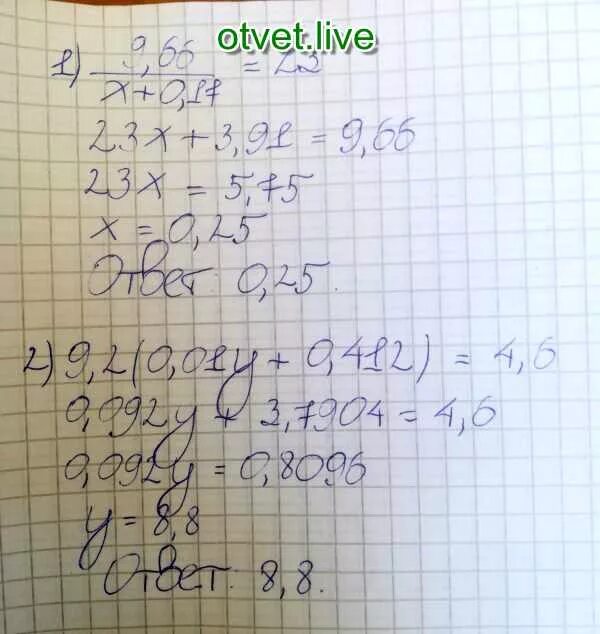 otvet.live
1) 9,66 / x+0,17 = 23
23x + 3,91 = 9,66
23x = 5,75
x = 0,25
Ответ: 0,25.
2) 9,2(0,01y + 0,412) = 4,6
0,092y + 3,7904 = 4,6
0,092y = 0,8096
y = 8,8
Ответ: 8,8.